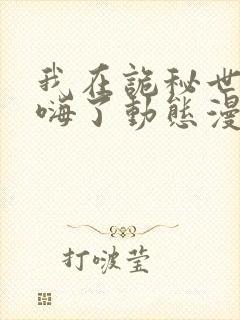 我在詭秘世
嗨了動態漫
打啵莹